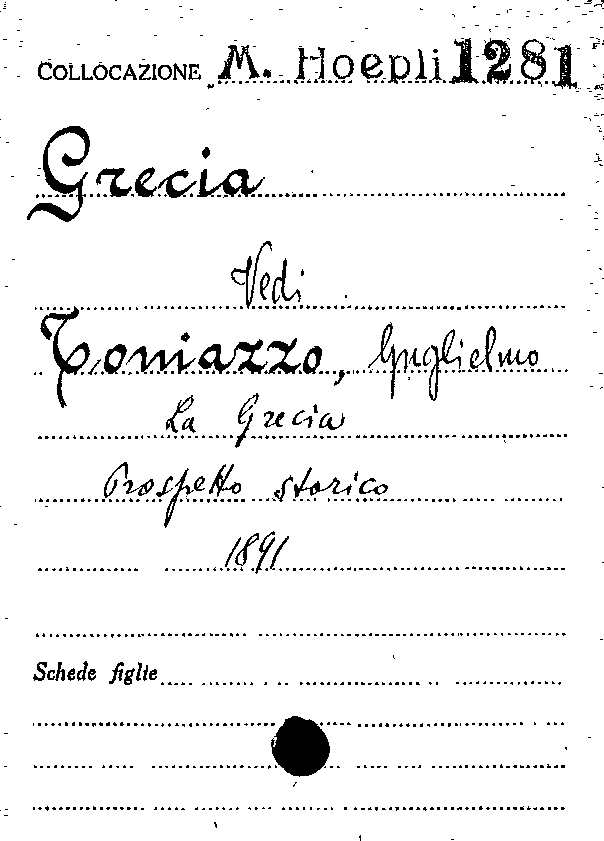 COLLOCAZIONE M. Hoepli 1281
Grecia
Vedi
Toniazzo, Guglielmo
La Grecia
Prospetto storico
1891
Schede figlie